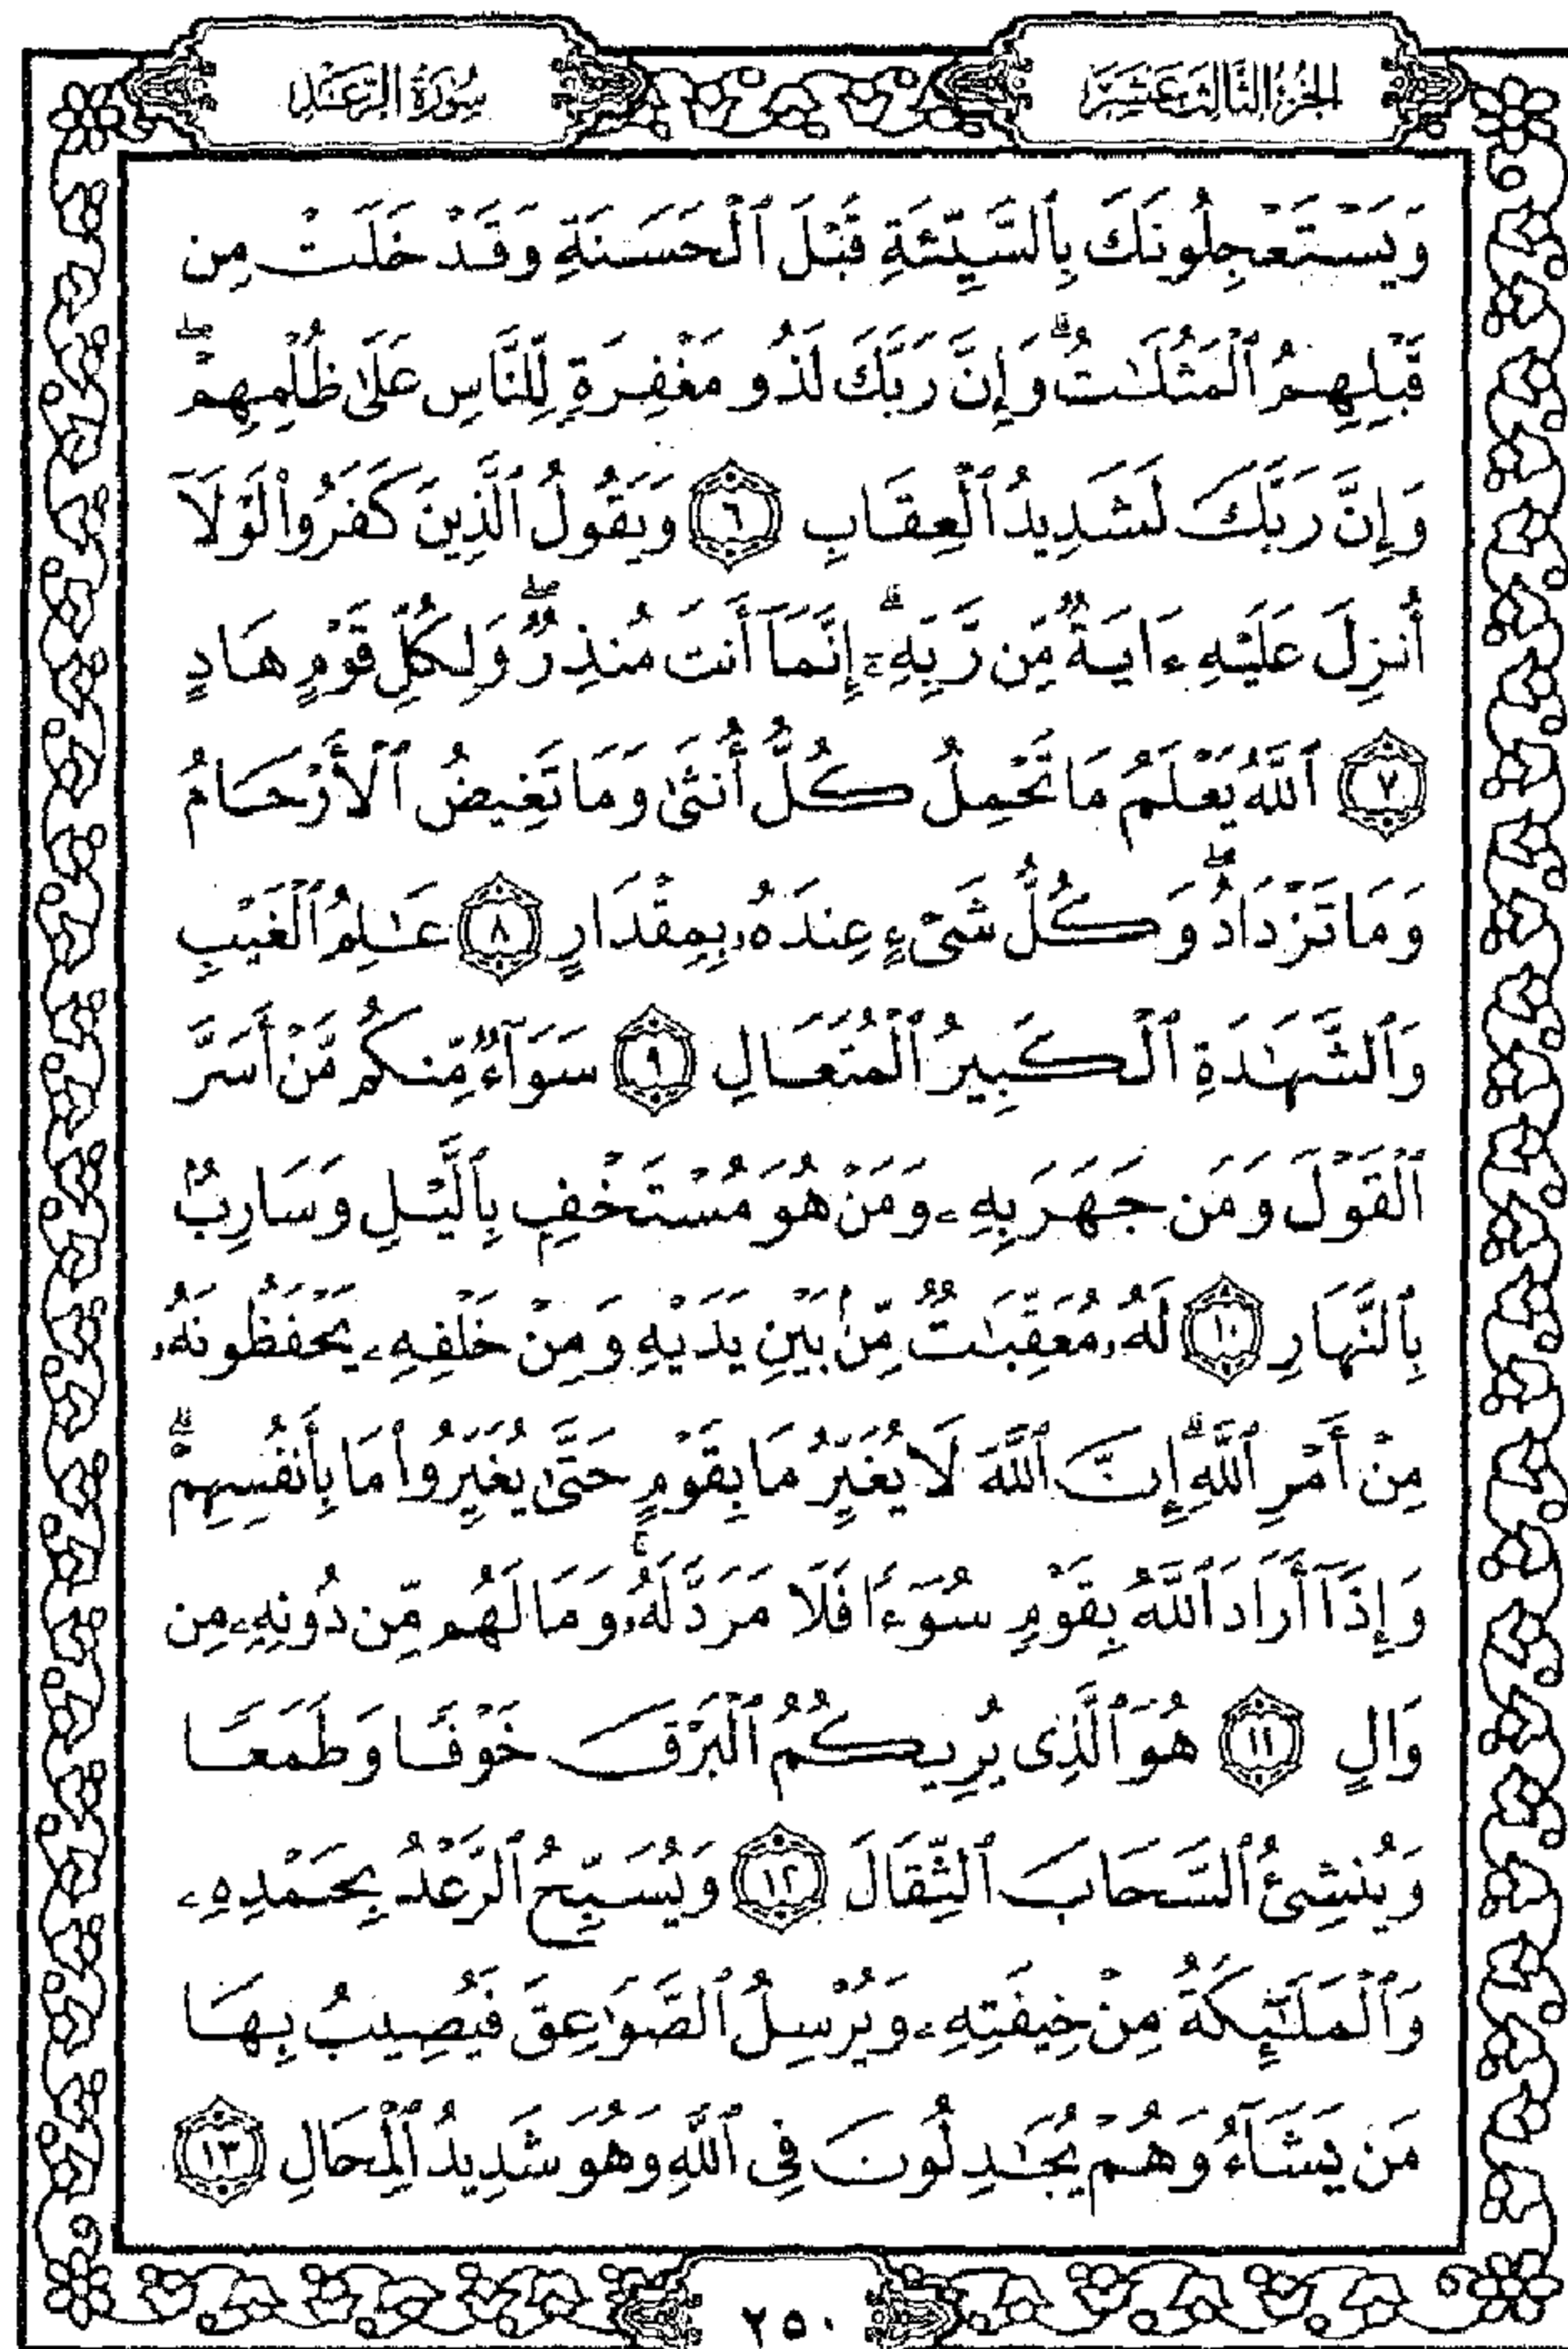 الجزء الثالث عشر
سورة الرعد
وَيَسْتَعْجِلُونَكَ بِٱلسَّيِّئَةِ قَبْلَ ٱلْحَسَنَةِ وَقَدْ خَلَتْ مِن
قَبْلِهِمُ ٱلْمَثُلَٰتُۗ وَإِنَّ رَبَّكَ لَذُو مَغْفِرَةٍ لِّلنَّاسِ عَلَىٰ ظُلْمِهِمْۖ
وَإِنَّ رَبَّكَ لَشَدِيدُ ٱلْعِقَابِ ٦ وَيَقُولُ ٱلَّذِينَ كَفَرُوا۟ لَوْلَآ
أُنزِلَ عَلَيْهِ ءَايَةٌ مِّن رَّبِّهِۦٓۗ إِنَّمَآ أَنتَ مُنذِرٌۖ وَلِكُلِّ قَوْمٍ هَادٍ
٧ ٱللَّهُ يَعْلَمُ مَا تَحْمِلُ كُلُّ أُنثَىٰ وَمَا تَغِيضُ ٱلْأَرْحَامُ
وَمَا تَزْدَادُۖ وَكُلُّ شَىْءٍ عِندَهُۥ بِمِقْدَارٍ ٨ عَٰلِمُ ٱلْغَيْبِ
وَٱلشَّهَٰدَةِ ٱلْكَبِيرُ ٱلْمُتَعَالِ ٩ سَوَآءٌ مِّنكُم مَّنْ أَسَرَّ
ٱلْقَوْلَ وَمَن جَهَرَ بِهِۦ وَمَنْ هُوَ مُسْتَخْفٍۭ بِٱلَّيْلِ وَسَارِبٌۢ
بِٱلنَّهَارِ ١٠ لَهُۥ مُعَقِّبَٰتٌ مِّنۢ بَيْنِ يَدَيْهِ وَمِنْ خَلْفِهِۦ يَحْفَظُونَهُۥ
مِنْ أَمْرِ ٱللَّهِۗ إِنَّ ٱللَّهَ لَا يُغَيِّرُ مَا بِقَوْمٍ حَتَّىٰ يُغَيِّرُوا۟ مَا بِأَنفُسِهِمْۗ
وَإِذَآ أَرَادَ ٱللَّهُ بِقَوْمٍ سُوٓءًا فَلَا مَرَدَّ لَهُۥۚ وَمَا لَهُم مِّن دُونِهِۦ مِن
وَالٍ ١١ هُوَ ٱلَّذِى يُرِيكُمُ ٱلْبَرْقَ خَوْفًا وَطَمَعًا
وَيُنشِئُ ٱلسَّحَابَ ٱلثِّقَالَ ١٢ وَيُسَبِّحُ ٱلرَّعْدُ بِحَمْدِهِۦ
وَٱلْمَلَٰٓئِكَةُ مِنْ خِيفَتِهِۦ وَيُرْسِلُ ٱلصَّوَٰعِقَ فَيُصِيبُ بِهَا
مَن يَشَآءُ وَهُمْ يُجَٰدِلُونَ فِى ٱللَّهِ وَهُوَ شَدِيدُ ٱلْمِحَالِ ١٣
٢٥٠